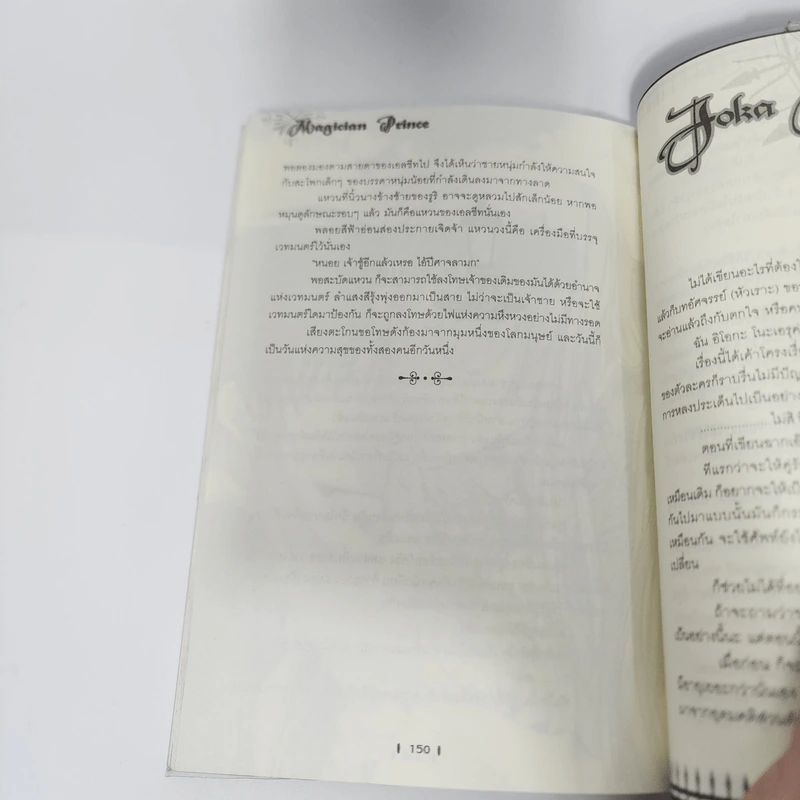 Magician Prince
พอลองมองตามสายตาของเอลซีทไป จึงได้เห็นว่าชายหนุ่มกำลังให้ความสนใจ
กับสะโพกเล็กๆ ของบรรดาหนุ่มน้อยที่กำลังเดินลงมาจากทางลาด
แหวนที่นิ้วนางข้างซ้ายของรูริ อาจจะดูหลวมไปสักเล็กน้อย หากพอ
หมุนดูลักษณะรอบๆ แล้ว มันก็คือแหวนของเอลซีทนั่นเอง
พลอยสีฟ้าอ่อนส่องประกายเจิดจ้า แหวนวงนี้คือ เครื่องมือที่บรรจุ
เวทมนตร์ไว้นั่นเอง
"หนอย เจ้าชู้อีกแล้วเหรอ ไอ้ปีศาจลามก"
พอสะบัดแหวน ก็จะสามารถใช้ลงโทษเจ้าของเดิมของมันได้ด้วยอำนาจ
แห่งเวทมนตร์ ลำแสงสีรุ้งพุ่งออกมาเป็นสาย ไม่ว่าจะเป็นเจ้าชาย หรือจะใช้
เวทมนตร์ใดมาป้องกัน ก็จะถูกลงโทษด้วยไฟแห่งความหึงหวงอย่างไม่มีทางรอด
เสียงตะโกนขอโทษดังก้องมาจากมุมหนึ่งของโลกมนุษย์ และวันนี้ก็
เป็นวันแห่งความสุขของทั้งสองคนอีกวันหนึ่ง
150
Joka
ไม่ได้เขียนอะไรที่ต้องใ
แล้วก็บทอัศจรรย์ (หัวเราะ) ขอ
จะอ่านแล้วถึงกับตกใจ หรือค
ฉัน อิโอกะ โนะเอรุค
เรื่องนี้ได้เค้าโครงเรื่
ของตัวละครก็ราบรื่นไม่มีปัญ
การหลงประเด็นไปเป็นอย่าง
ไม่สิ
ตอนที่เขียนฉากเอ
ทีแรกว่าจะให้คู่รั
เหมือนเดิม ก็อยากจะให้เป็
กันไปมาแบบนั้นมันก็กระ
เหมือนกัน จะใช้ศัพท์ยังไ
เปลี่ยน
ก็ช่วยไม่ได้ที่ออ
ถ้าจะถามว่า
เป็นอย่างนี้นะ แต่ตอนนี้
เมื่อก่อน ก็จะ